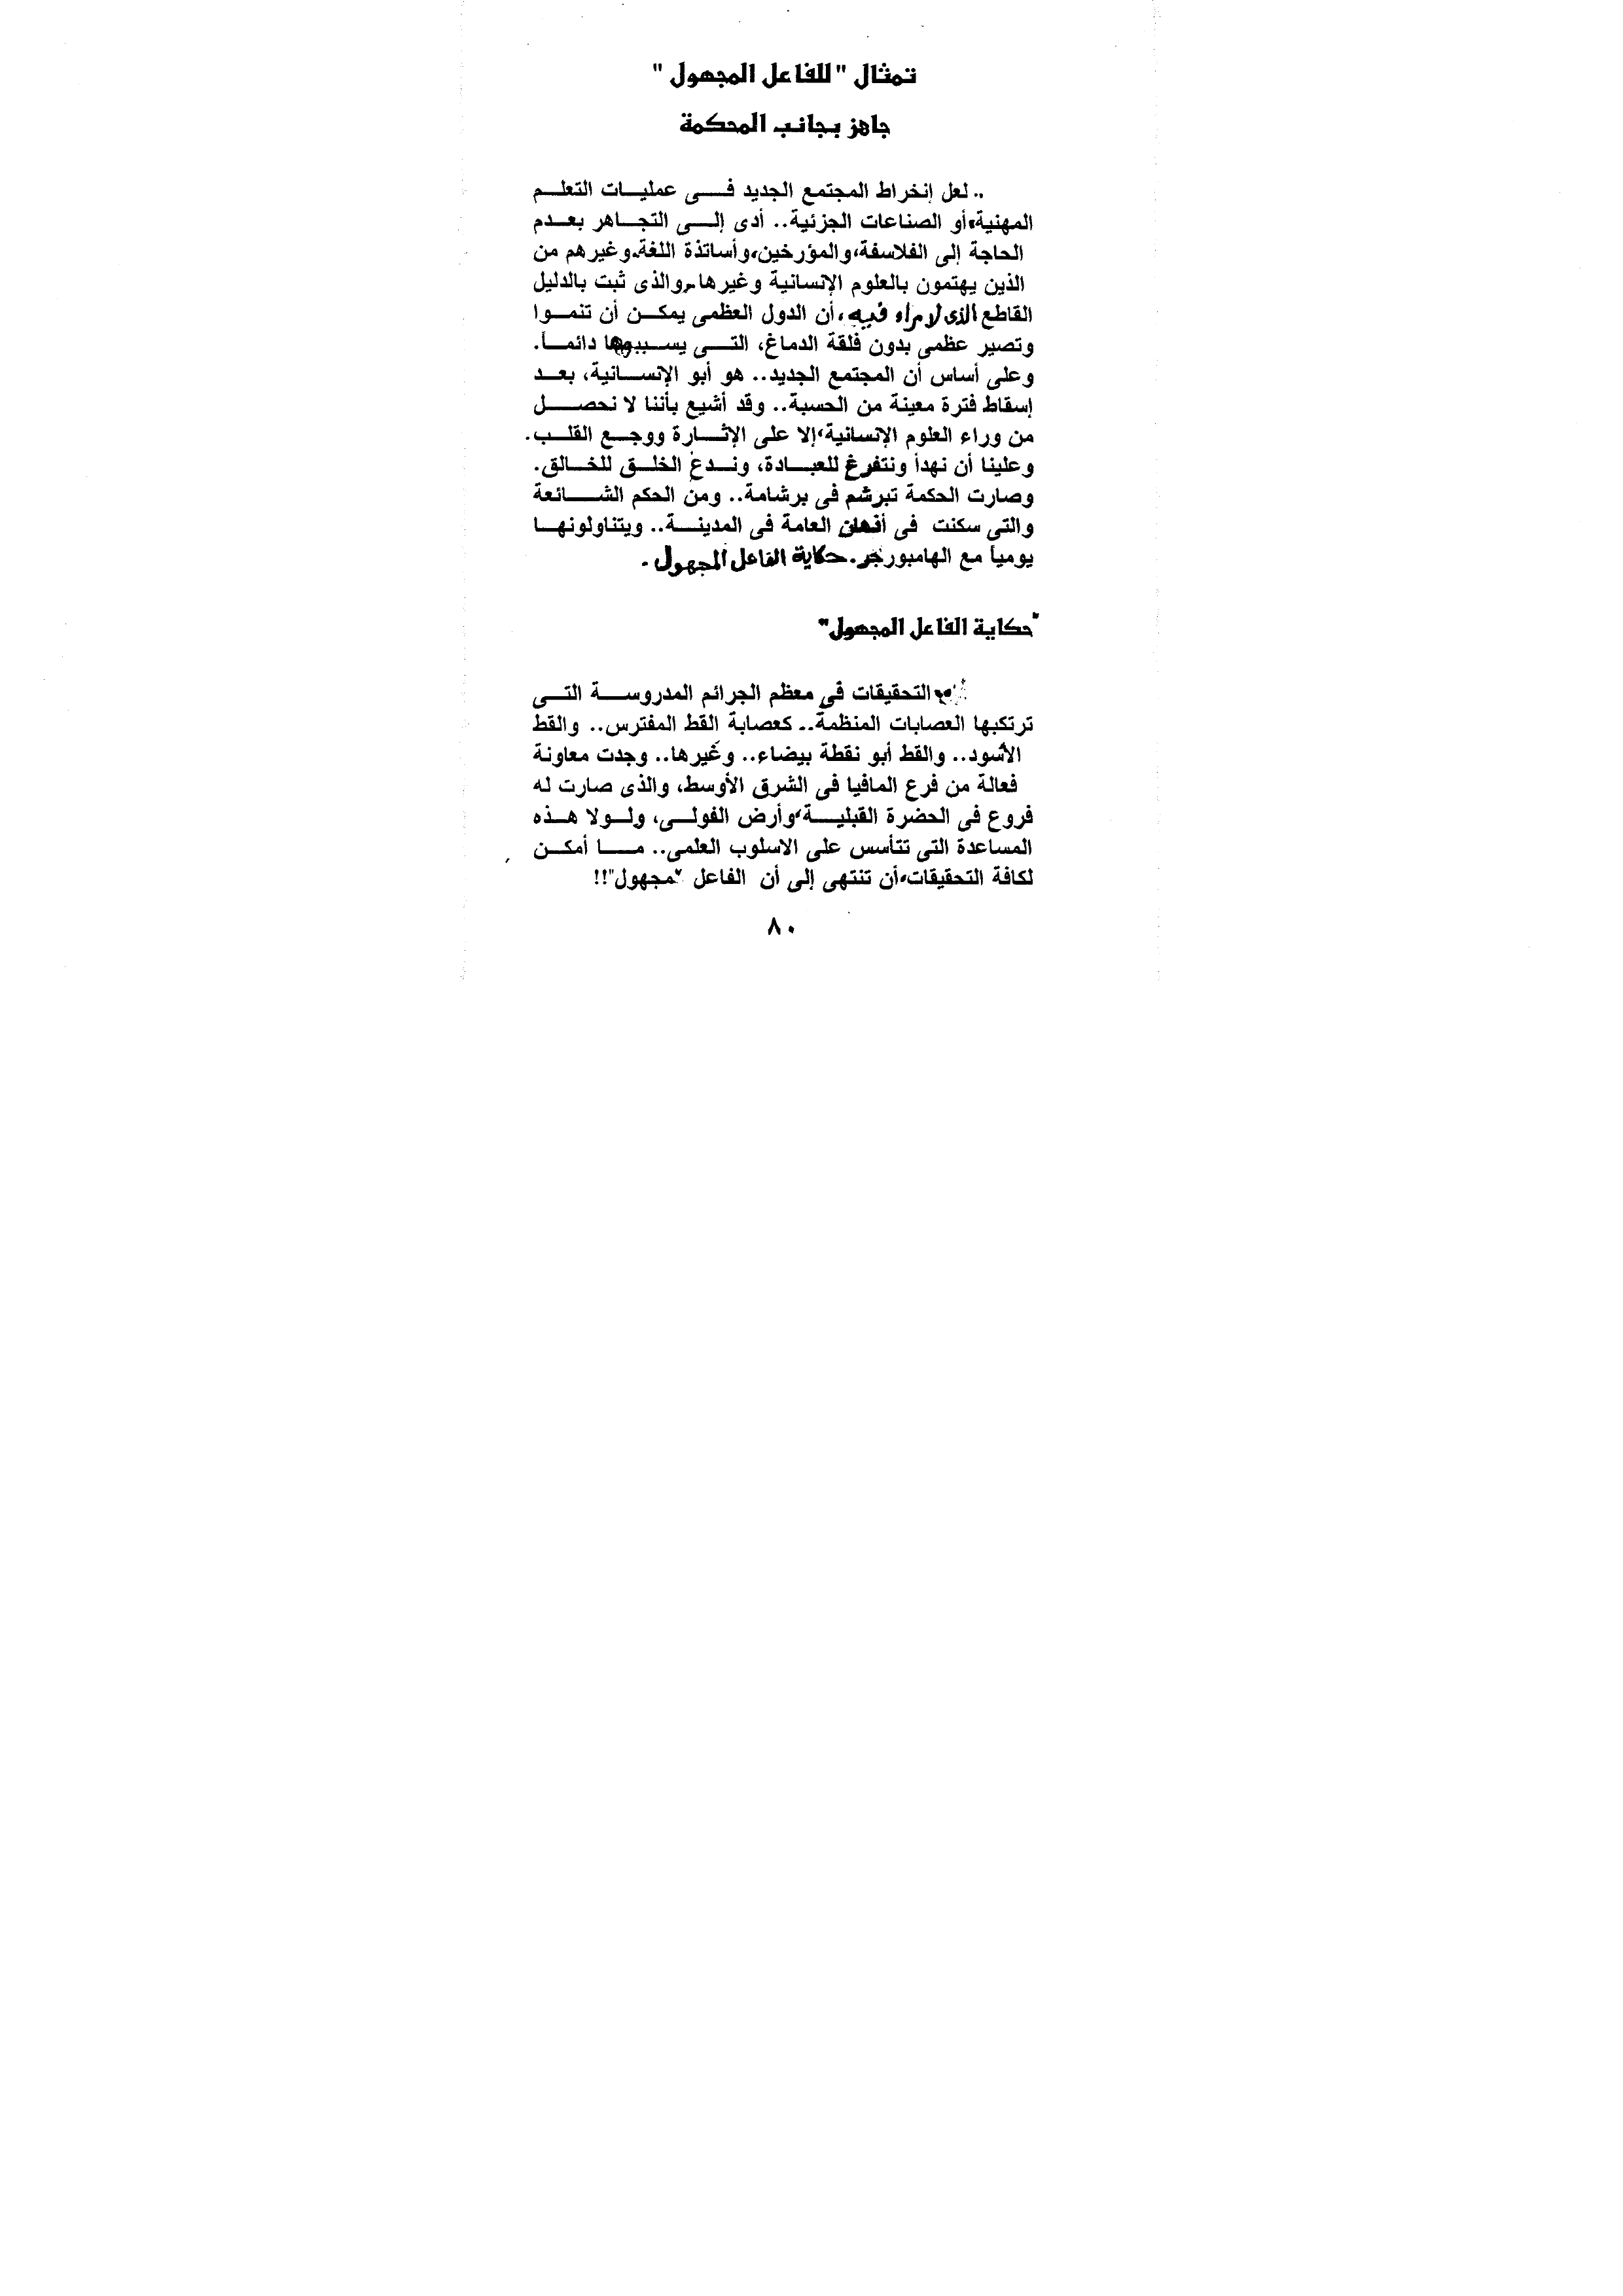 تمثال "للفاعل المجهول"
جاهز بجانب المحكمة
.. لعل إنخراط المجتمع الجديد فى عمليات التعلم
المهنية، أو الصناعات الجزئية.. أدى إلى التجاهر بعدم
الحاجة إلى الفلاسفة، والمؤرخين، وأساتذة اللغة. وغيرهم من
الذين يهتمون بالعلوم الإنسانية وغيرها. والذى ثبت بالدليل
القاطع الذى لا مراء فيه، أن الدول العظمى يمكن أن تنموا
وتصير عظمى بدون فلقة الدماغ، التى دائماً.
وعلى أساس أن المجتمع الجديد.. هو أبو الإنسانية، بعد
إسقاط فترة معينة من الحسبة.. وقد أشيع بأننا لا نحصل
من وراء العلوم الإنسانية، إلا على الإثارة ووجع القلب.
وعلينا أن نهدأ ونتفرغ للعبادة، وندع الخلق للخالق.
وصارت الحكمة تبرشم فى برشامة.. ومن الحكم الشائعة
والتى سكنت فى أذهان العامة فى المدينة.. ويتناولونها
يومياً مع الهامبورجر. حكاية الفاعل المجهول.
"حكاية الفاعل المجهول"
التحقيقات فى معظم الجرائم المدروسة التى
ترتكبها العصابات المنظمة.. كعصابة القط المفترس.. والقط
الأسود.. والقط أبو نقطة بيضاء.. وغيرها.. وجدت معاونة
فعالة من فرع المافيا فى الشرق الأوسط، والذى صارت له
فروع فى الحضرة القبلية، وأرض الفولى، ولولا هذه
المساعدة التى تتأسس على الاسلوب العلمى.. ما أمكن
لكافة التحقيقات، أن تنتهى إلى أن الفاعل "مجهول"!!
٨٠